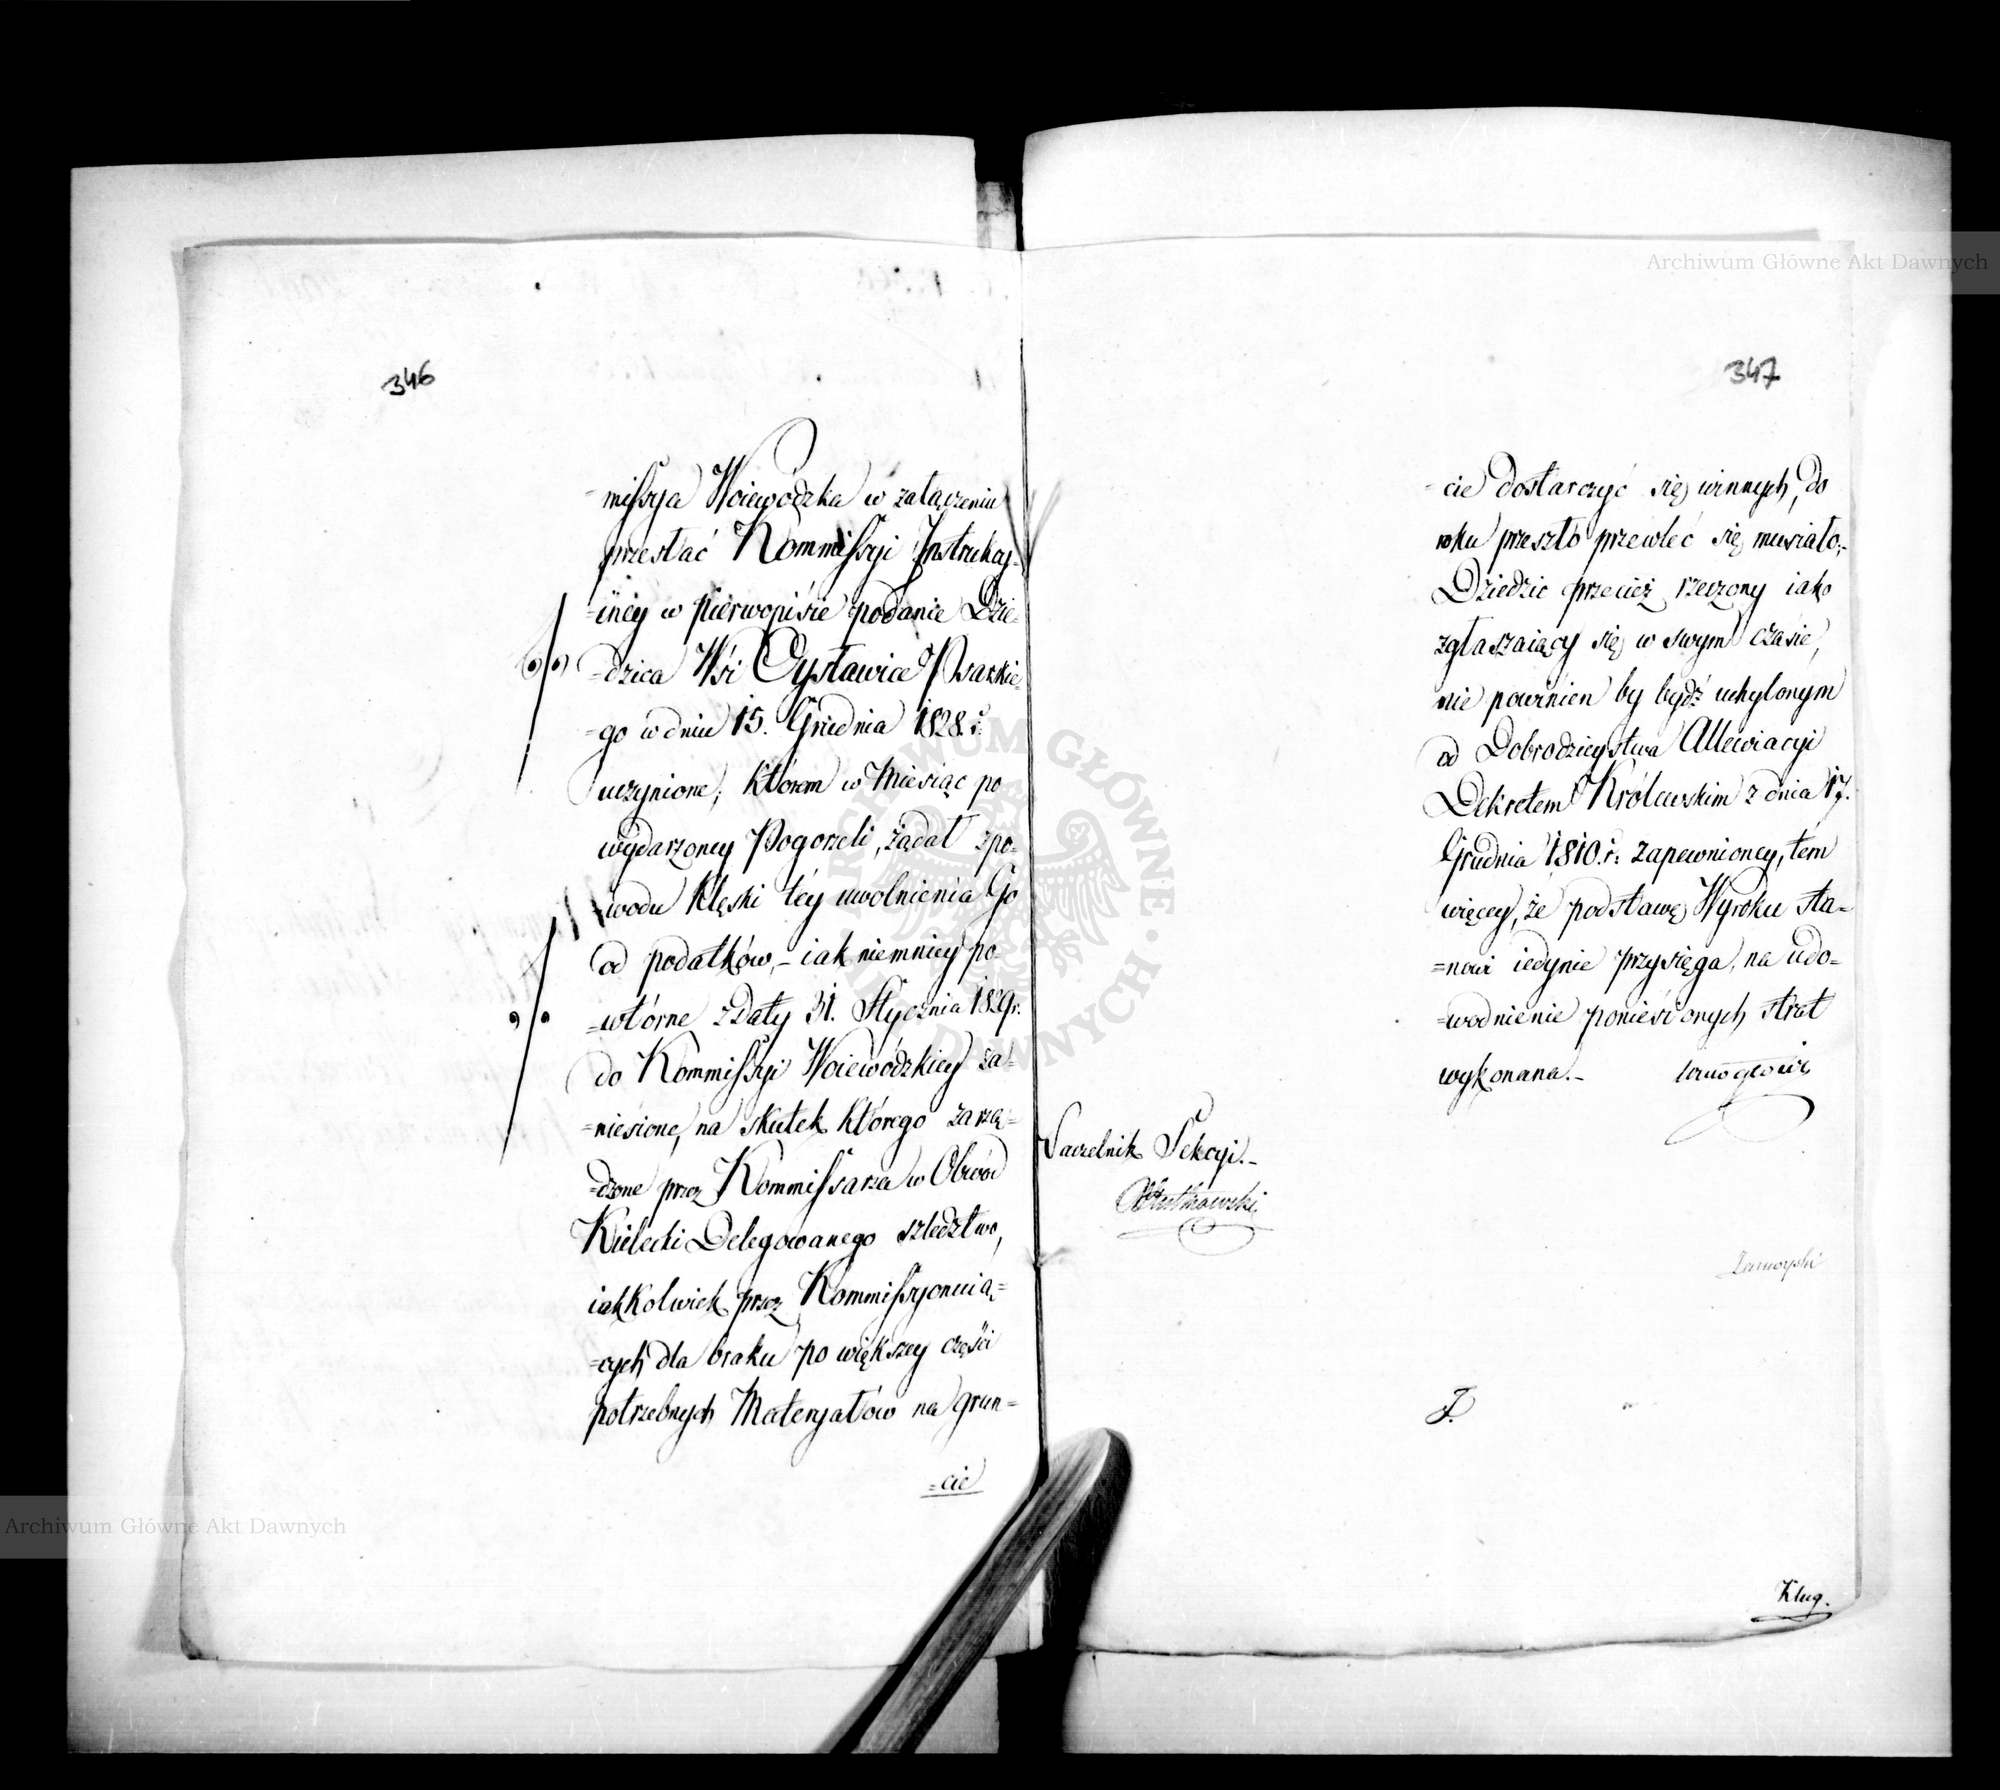 346
=missyja Woiewódzka w załączeniu
przesłać Kommissyi Instrukcy=
=iney w pierwopisie podanie Dzie=
=dzica Wsi Czysławice Psarskie=
=go w dniu 15. Grudnia 1828. r.
uczynione, którem w Miesiąc po
wydarzoney Pogorzeli, żądał z po=
=wodu Klęski tey uwolnienia Go
od podatków, – iak niemniey po=
=wtórne z Daty 31. Stycznia 1829 r.
do Kommissyi Woiewódzkiey za=
=niesione, na skutek którego zarzą=
=dzone przez Kommissarza w Obwód
Kielecki Delegowanego szledztwo,
iakkolwiek przez Kommissyonuią=
=cych dla braku po większey części
potrzebnych Materyałów na grun=
=cie
347
=cie dostarczyć się winnych, do
roku przeszło przewlec się musiało,–
Dziedzic przecież rzeczony iako
zgłaszaiący się w swym czasie,
nie powinien by bydź uchylonym
od Dobrodzieystwa Allewiacyi
Dekretem Królewskim z dnia 17.
Grudnia 1810. r. zapewnioney, tem
więcey, że podstawę Wyroku sta=
=nowi iedynie przysięga, na udo=
=wodnienie poniesionych strat
wykonana. –
Naczelnik Sekcyi. –
Zamoyski
Klug.
Archiwum Główne Akt Dawnych
Archiwum Główne Akt Dawnych
ARCHIWUM GŁÓWNE AKT DAWNYCH